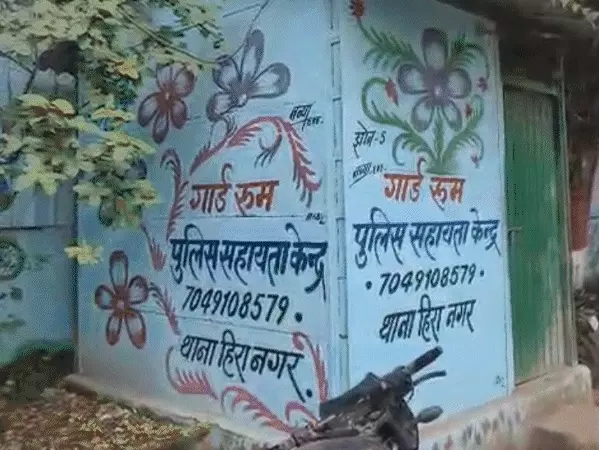 गार्ड रूम
पुलिस सहायता केन्द्र
7049108579.
थाना हिरा नगर.
झोन-5
गार्ड रूम
पुलिस सहायता केन्द्र
.7049108579.
थाना हिरा नगर